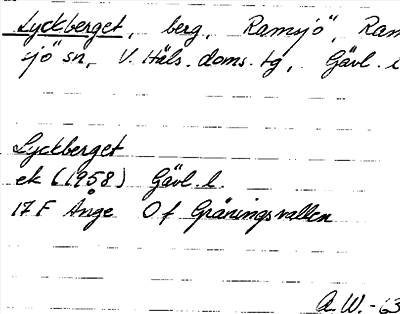 Lyckberget, berg, Ramsjö", Ram
sjö" sn, V. Häls. doms. tg, Gävl. l
Lyckberget
ek (1958) Gävl. l.
17F Ånge Of Gräningsvallen
A.W.-63